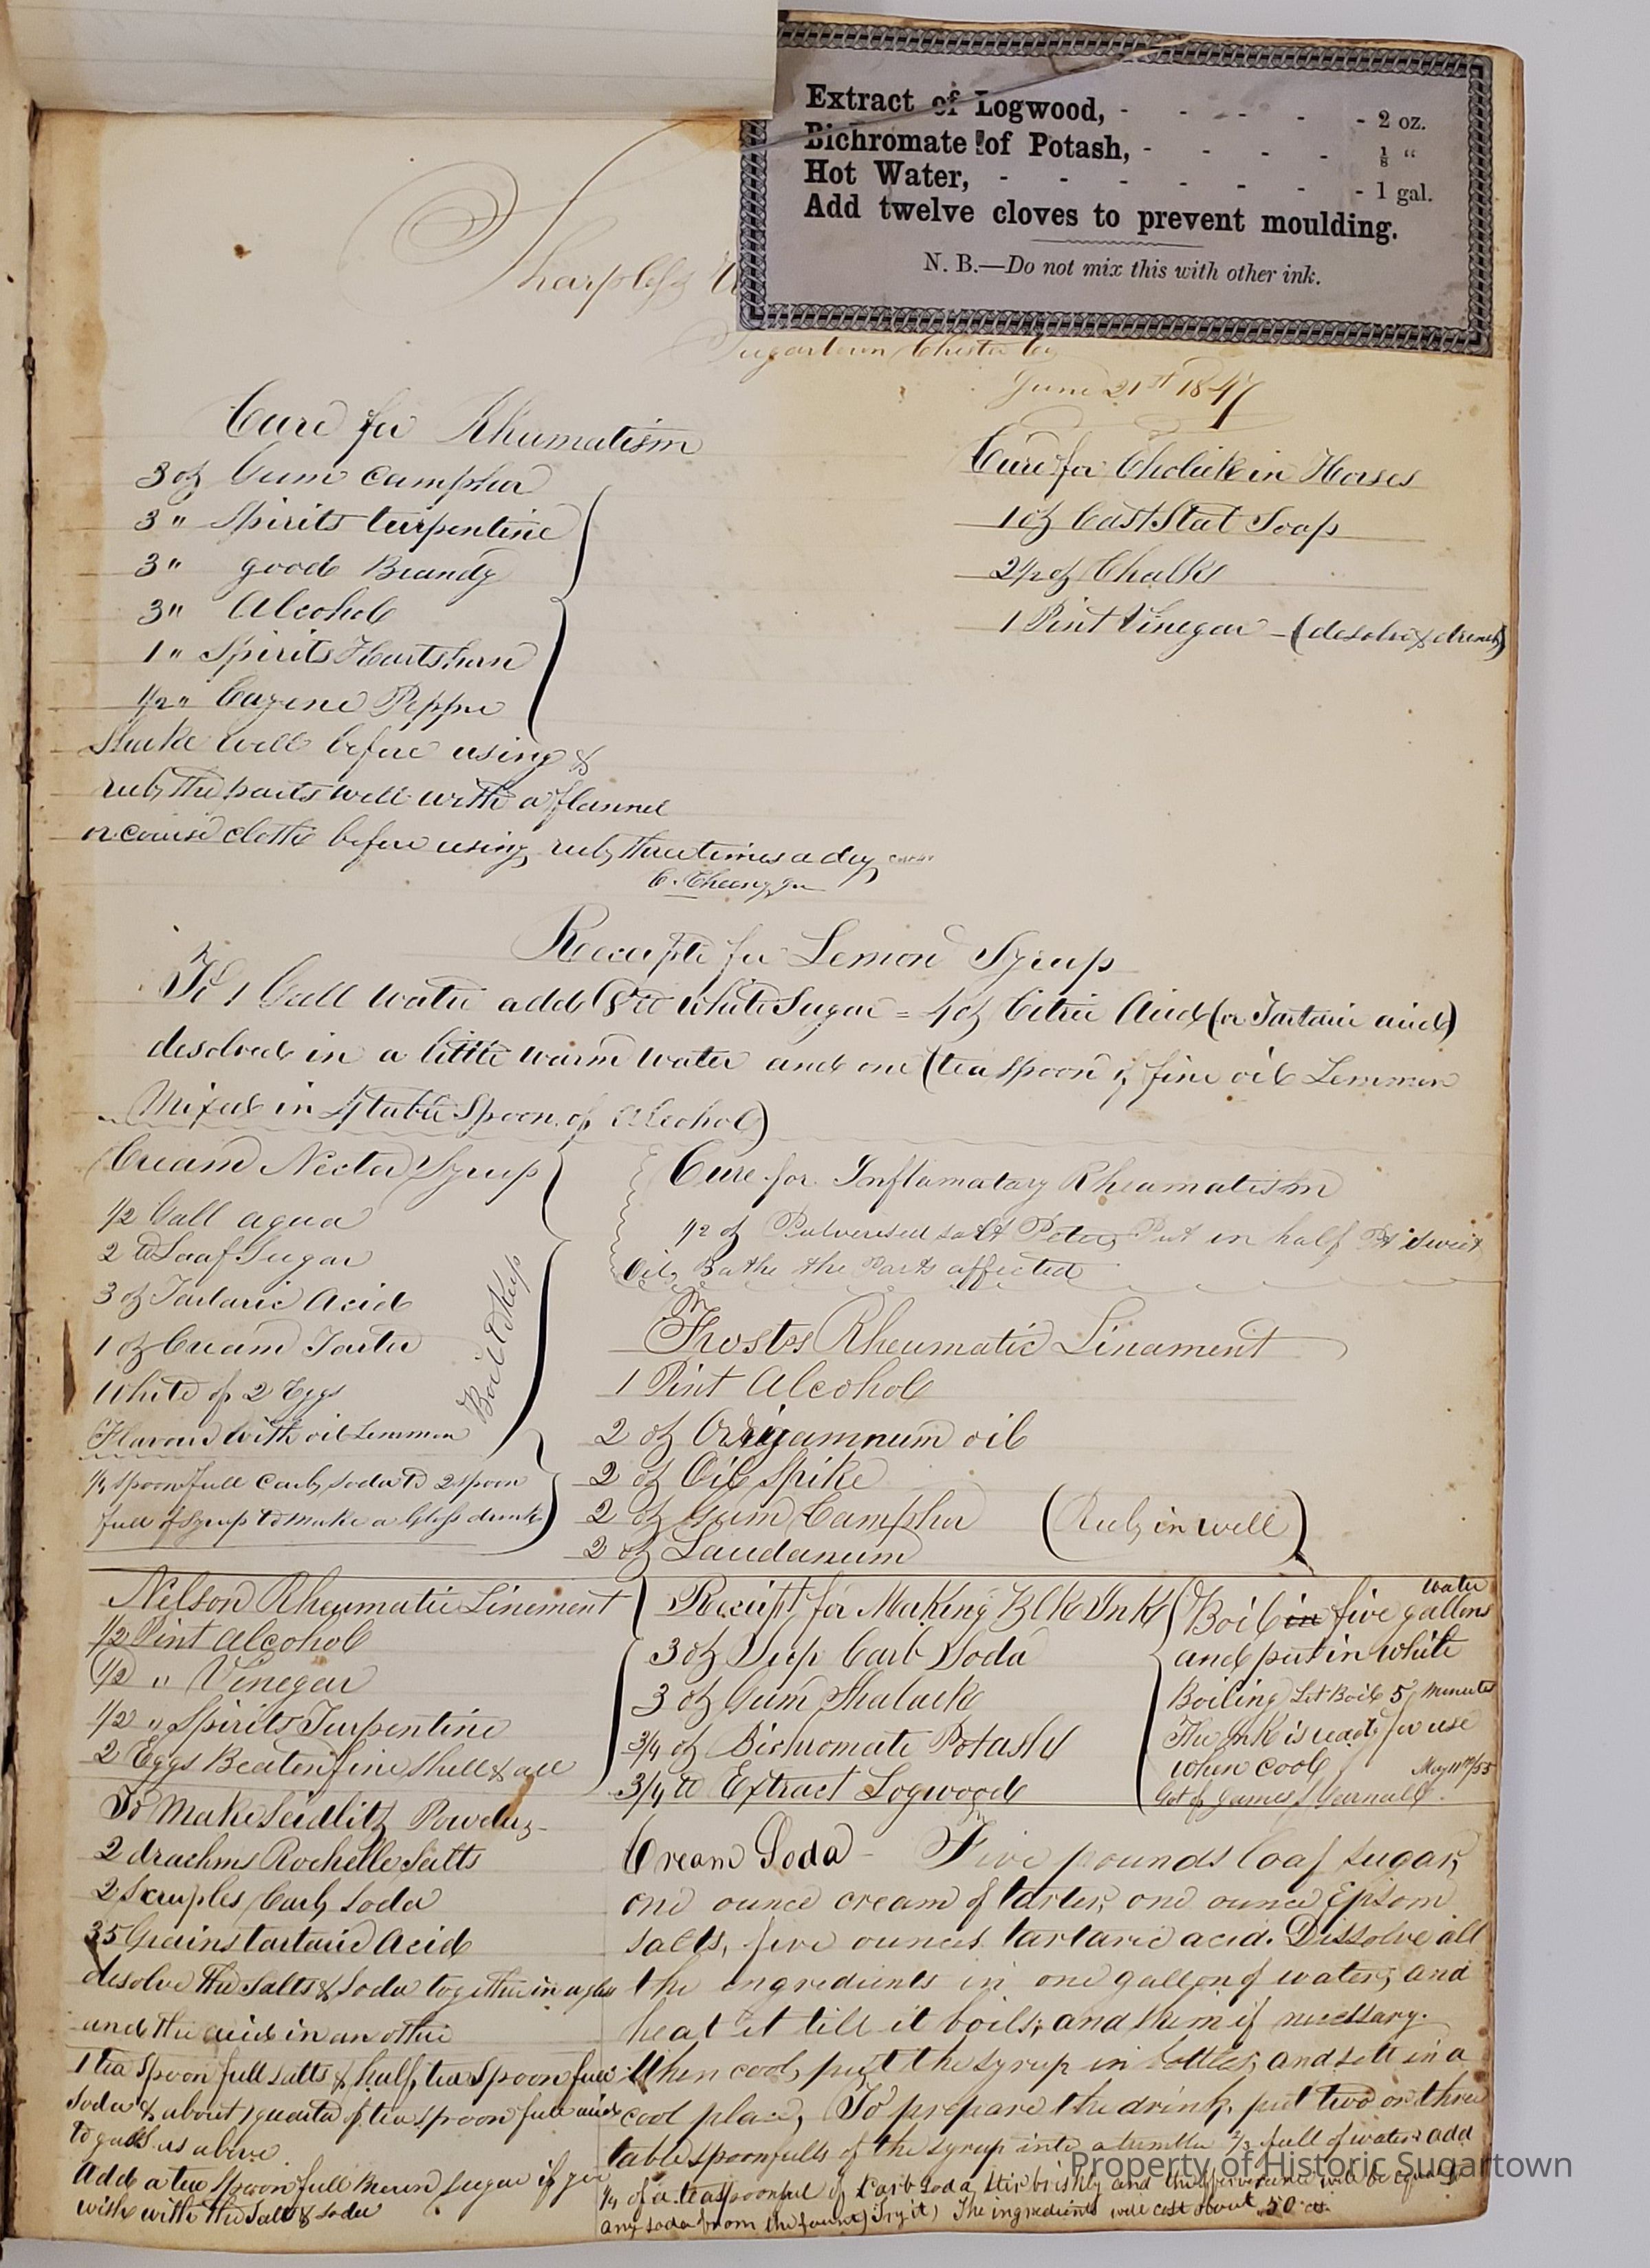 Extract of Logwood, - - - - - 2 oz.
Bichromate of Potash, - - - - ⅛ “
Hot Water, - - - - - - - 1 gal.
Add twelve cloves to prevent moulding.
N. B.—Do not mix this with other ink.
Sharpless
Sugartown Chester Co
June 21st 1847
Cure for Rhumatism
3 oz Gum Camphor
3 " Spirits turpentine
3 " good Brandy
3 " Alcohol
1 " Spirits Hartshurn
1/2 " Cayene Pepper
Shake well before using &
rub the parts well with a flannel
or course cloth before using rub three times a day
Cure for Cholick in Horses
1 oz Cast Steel Soap
2 1/2 oz Chalk
1 Pint Vinegar - (desolve & drench)
Receipt for Lemon Syrup
To 1 Gall water add 8 lb white Sugar = 4 oz Citric Acid (or Tartaric acid)
desolved in a little warm water and one (teaspoon of fine oil Lemmon
Mixed in 4 table Spoon of Alcohol)
Cream Necter Syrup
1/2 Gall aqua
2 lb Loaf Sugar
3 oz Tartaric Acid
1 oz Cream Tarter
White of 2 Eggs
Flavour with oil Lemmon
Boil & Skip
1/4 spoonfull Carb soda to 2 spoon
full of syrup to make a Glass drink
Cure for Inflamatary Rheamatism
1/2 oz Pulverised salt Peter Put in half Pt sweet
Oil, Bathe the Parts affected
Frosts Rheumatic Linament
1 Pint Alcohol
2 oz Origamnum oil
2 oz Oil Spike
2 oz Gum Camphor (Rub in well)
2 oz Laudanum
Nelson Rheumatic Liniment
1/2 Pint Alcohol
1/2 " Vinegar
1/2 " Spirits Turpentine
2 Eggs Beaten fine Shell & all
Receipt for Making Blk Ink
3 oz Sup Carb Soda
3 oz Gum Shalack
3/4 oz Bichromate Potash
3/4 lb Extract Logwood
Boil in five gallons water
and put in white
Boiling Let Boil 5 minutes
The Ink is ready for use
when cool May 11th/55
Got of James Yarnall
To Make Seidlitz Powders
2 drachms Rochelle Salts
2 Scruples Carb Soda
35 Grains tartaric Acid
desolve the Salts & Soda together in a glass
and the acid in an other
1 tea Spoon full salts & half tea Spoon full
Soda & about 1 quarter of tea spoon full acid
to as above
Add a tea Spoon full sugar if you
wish with the Salt & soda
Cream Soda - Five pounds loaf sugar,
one ounce cream of tarter, one ounce Epsom
salts, five ounces tartaric acid. Dissolve all
the ingredients in one gallon of water, and
heat it till it boils, and skim if necessary.
When cool, put the syrup in bottles, and sett in a
cool place, To prepare the drink, put two or three
tablespoonfulls of the syrup into a tumbler 2/3 full of water add
1/4 of a teaspoonful of Carb soda, stir briskly and the effervesence will be equal to
any soda from the fount) Try it) The ingredients will cost about 50 cts.
Property of Historic Sugartown